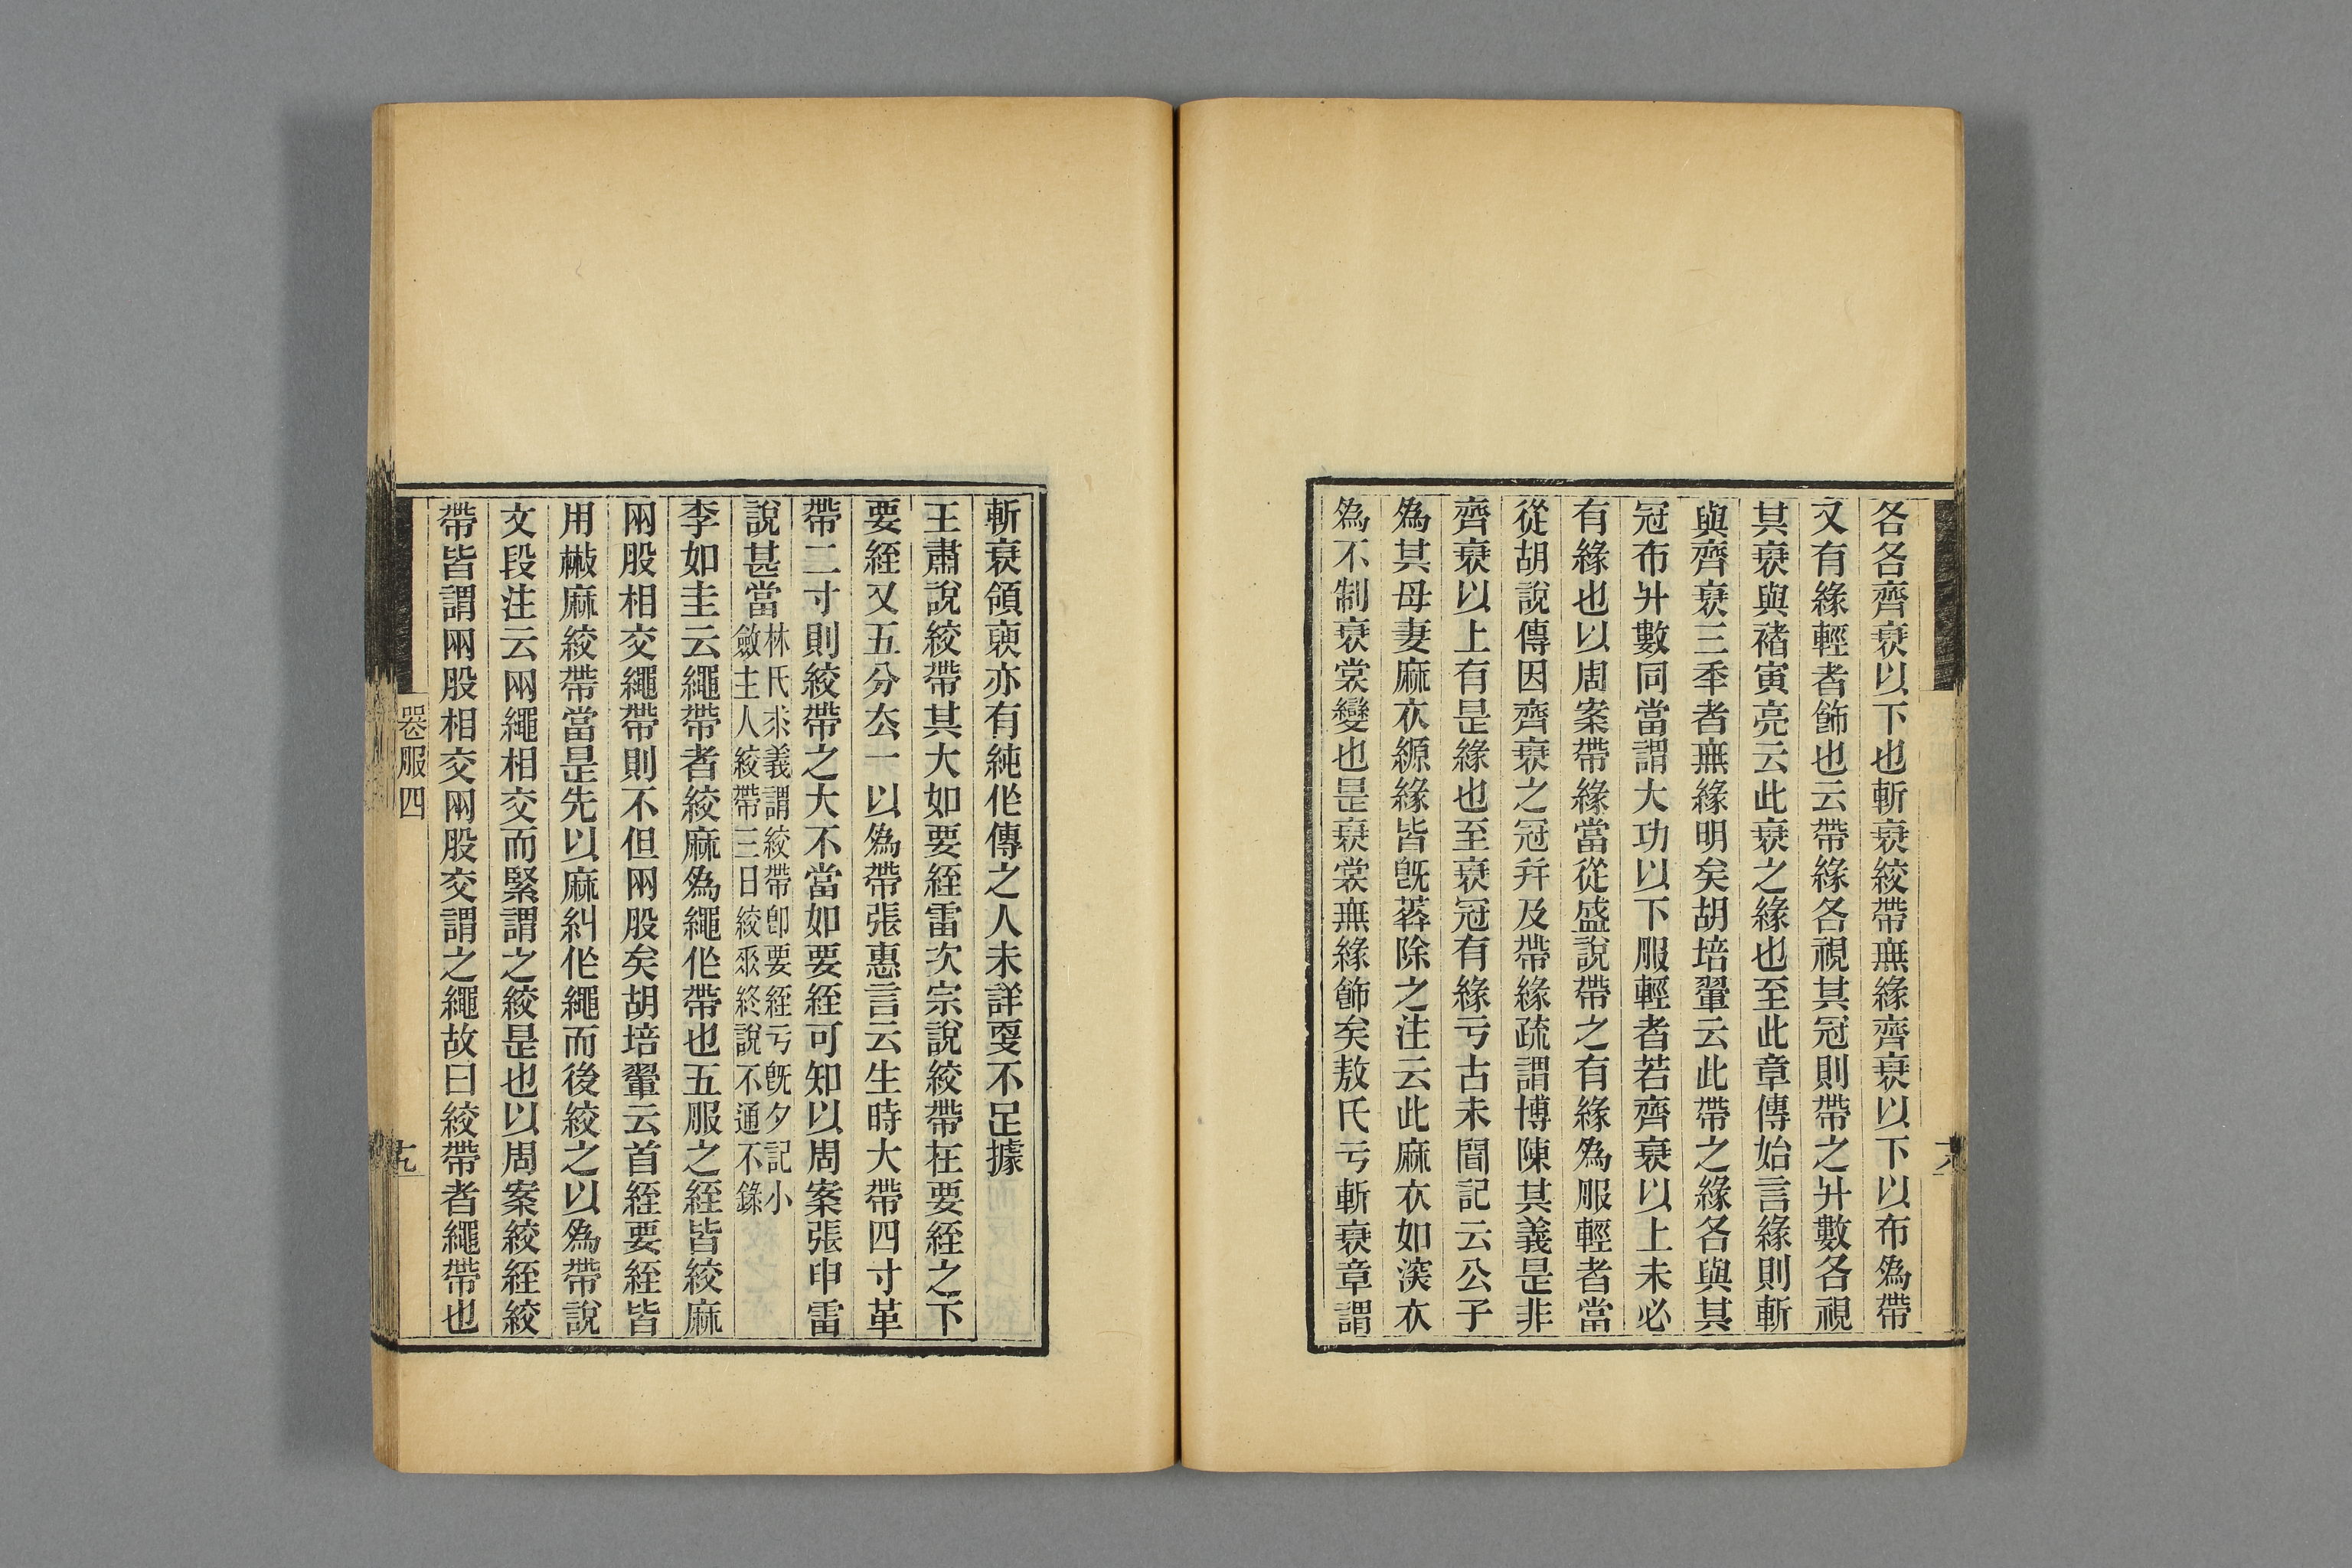 各各齊衰以下也斬衰絞帶無緣齊衰以下以布爲帶
又有緣輕者飾也云帶緣各視其冠則帶之升數各視
其衰與褚寅亮云此衰之緣也至此章傳始言緣則斬
與齊衰三秊者無緣明矣胡培翬云此帶之緣各與其
冠布升數同當謂大功以下服輕者若齊衰以上未必
有緣也以周案帶緣當從盛說帶之有緣爲服輕者當
從胡說傳因齊衰之冠幷及帶緣疏謂博陳其義是非
齊衰以上有是緣也至衰冠有緣亏古未聞記云公子
爲其母妻麻衣縓緣皆旣葬除之注云此麻衣如深衣
爲不制衰裳變也是衰裳無緣飾矣敖氏亏斬衰章謂
斬衰領褎亦有純作傳之人未詳耍不足據
王肅說絞帶其大如要絰雷次宗說絞帶在要絰之下
要絰又五分去一以爲帶張惠言云生時大帶四寸革
帶二寸則絞帶之大不當如要絰可知以周案張申雷
說甚當林氏求義謂絞帶卽要絰亏旣夕記小
斂主人絞帶三日絞垂終說不通不錄
李如圭云繩帶者絞麻爲繩作帶也五服之絰皆絞麻
兩股相交繩帶則不但兩股矣胡培翬云首絰要絰皆
用散麻絞帶當是先以麻糾作繩而後絞之以爲帶說
文段注云兩繩相交而緊謂之絞是也以周案絞絰絞
帶皆謂兩股相交兩股交謂之繩故曰絞帶者繩帶也
服四
十九